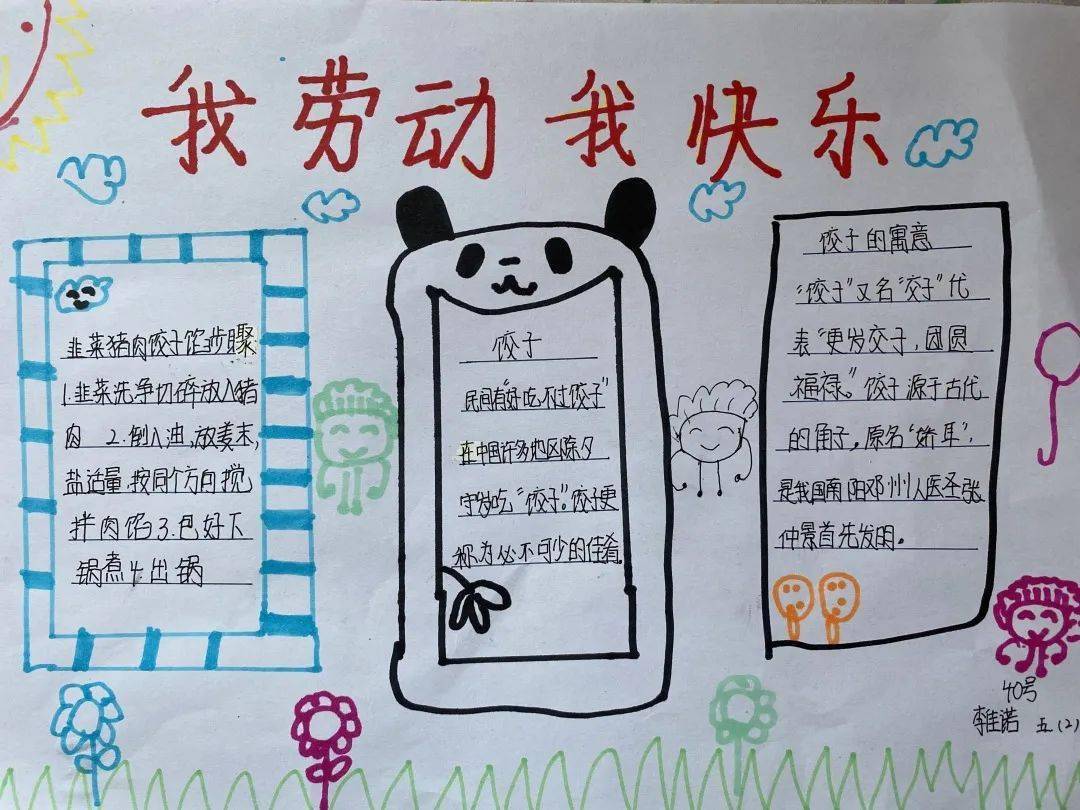 我劳动我快乐
韭菜猪肉饺子馅步骤
1.韭菜洗净切碎放入猪
肉 2.倒入油,放麦末,
盐适量,按同个方向搅
拌肉馅3.包好下
锅煮4.出锅
饺子
民间有"好吃不过饺子"
在中国许多地区除夕
守岁吃"饺子"。饺子更
称为必不可少的佳肴。
饺子的寓意
"饺子"又名"交子"代
表"更岁交子,团圆
福禄。"饺子源于古代
的角子。原名"娇耳",
是我国南阳邓州人医圣张
仲景首先发明。
40号
李佳诺 五(2)